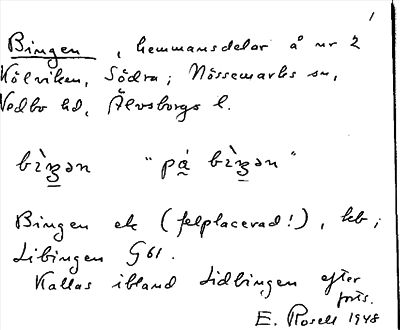 1
Bingen, hemmansdelar å nr 2
Kölviken, Södra; Nössemarks sn,
Vedbo hd, Älvsborgs l.
bìŋən "pá bìŋən"
Bingen ek (felplacerad!), kb;
Libingen G61.
Kallas ibland Lidbingen efter
forts.
E. Rosell 1948